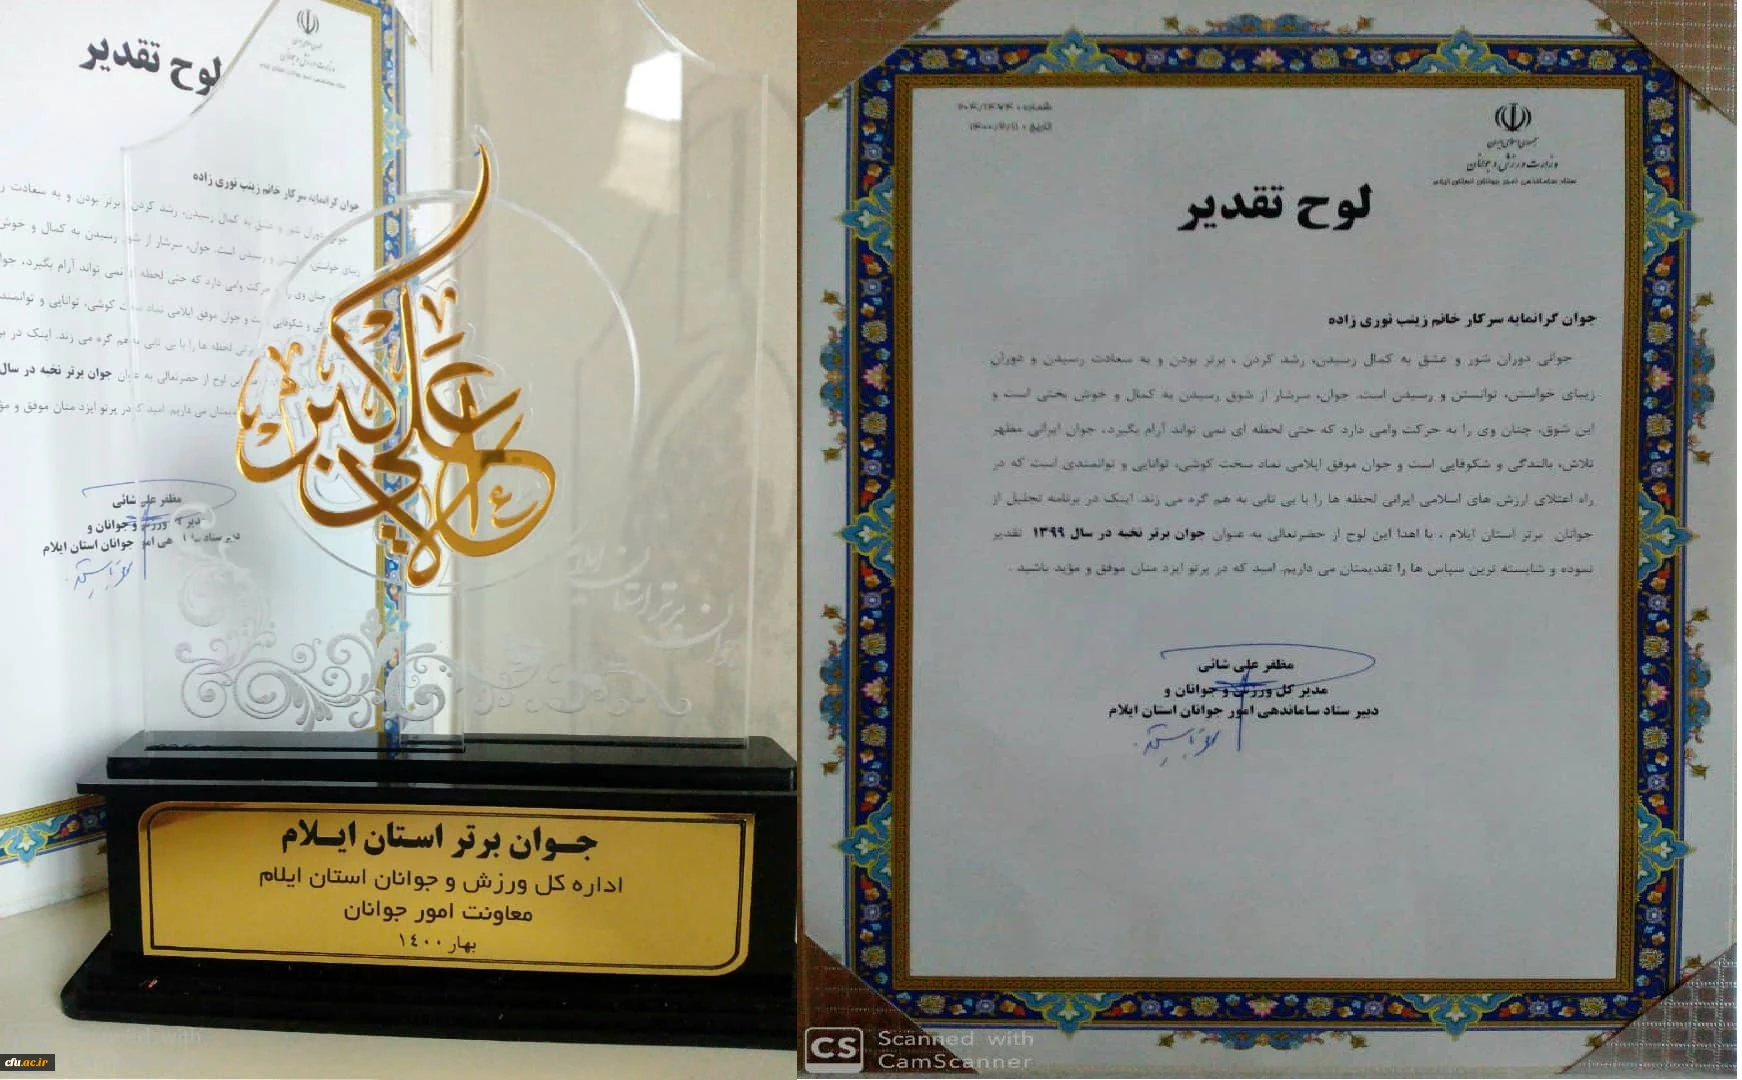 لوح تقدیر
جوان گرانمایه سرکار خانم زینب نوری زاده
مظفر علی شائی
جوانان استان ایلام
علی اکبر
جوان برتر استان ایلام
جـوان برتر استان ایـلام
اداره کل ورزش و جوانان استان ایلام
معاونت امور جوانان
بهار ۱٤۰۰
cfu.ac.ir
جمهوری اسلامی ایران
وزارت ورزش و جوانان
ستاد ساماندهی امور جوانان استان ایلام
لوح تقدیر
جوان گرانمایه سرکار خانم زینب نوری زاده
جوانی دوران شور و عشق به کمال رسیدن، رشد کردن ، برتر بودن و به سعادت رسیدن و دوران
زیبای خواستن، توانستن و رسیدن است. جوان، سرشار از شوق رسیدن به کمال و خوش بختی است و
این شوق، چنان وی را به حرکت وامی دارد که حتی لحظه ای نمی تواند آرام بگیرد، جوان ایرانی مظهر
تلاش، بالندگی و شکوفایی است و جوان موفق ایلامی نماد سخت کوشی، توانایی و توانمندی است که در
راه اعتلای ارزش های اسلامی ایرانی لحظه ها را با بی تابی به هم گره می زند. اینک در برنامه تجلیل از
جوانان برتر استان ایلام ، با اهدا این لوح از حضرتعالی به عنوان جوان برتر نخبه در سال ۱۳۹۹ تقدیر
نموده و شایسته ترین سپاس ها را تقدیمتان می داریم. امید که در پرتو ایزد منان موفق و مؤید باشید .
مظفر علی شائی
مدیر کل ورزش و جوانان و
دبیر ستاد ساماندهی امور جوانان استان ایلام
CS Scanned with
CamScanner